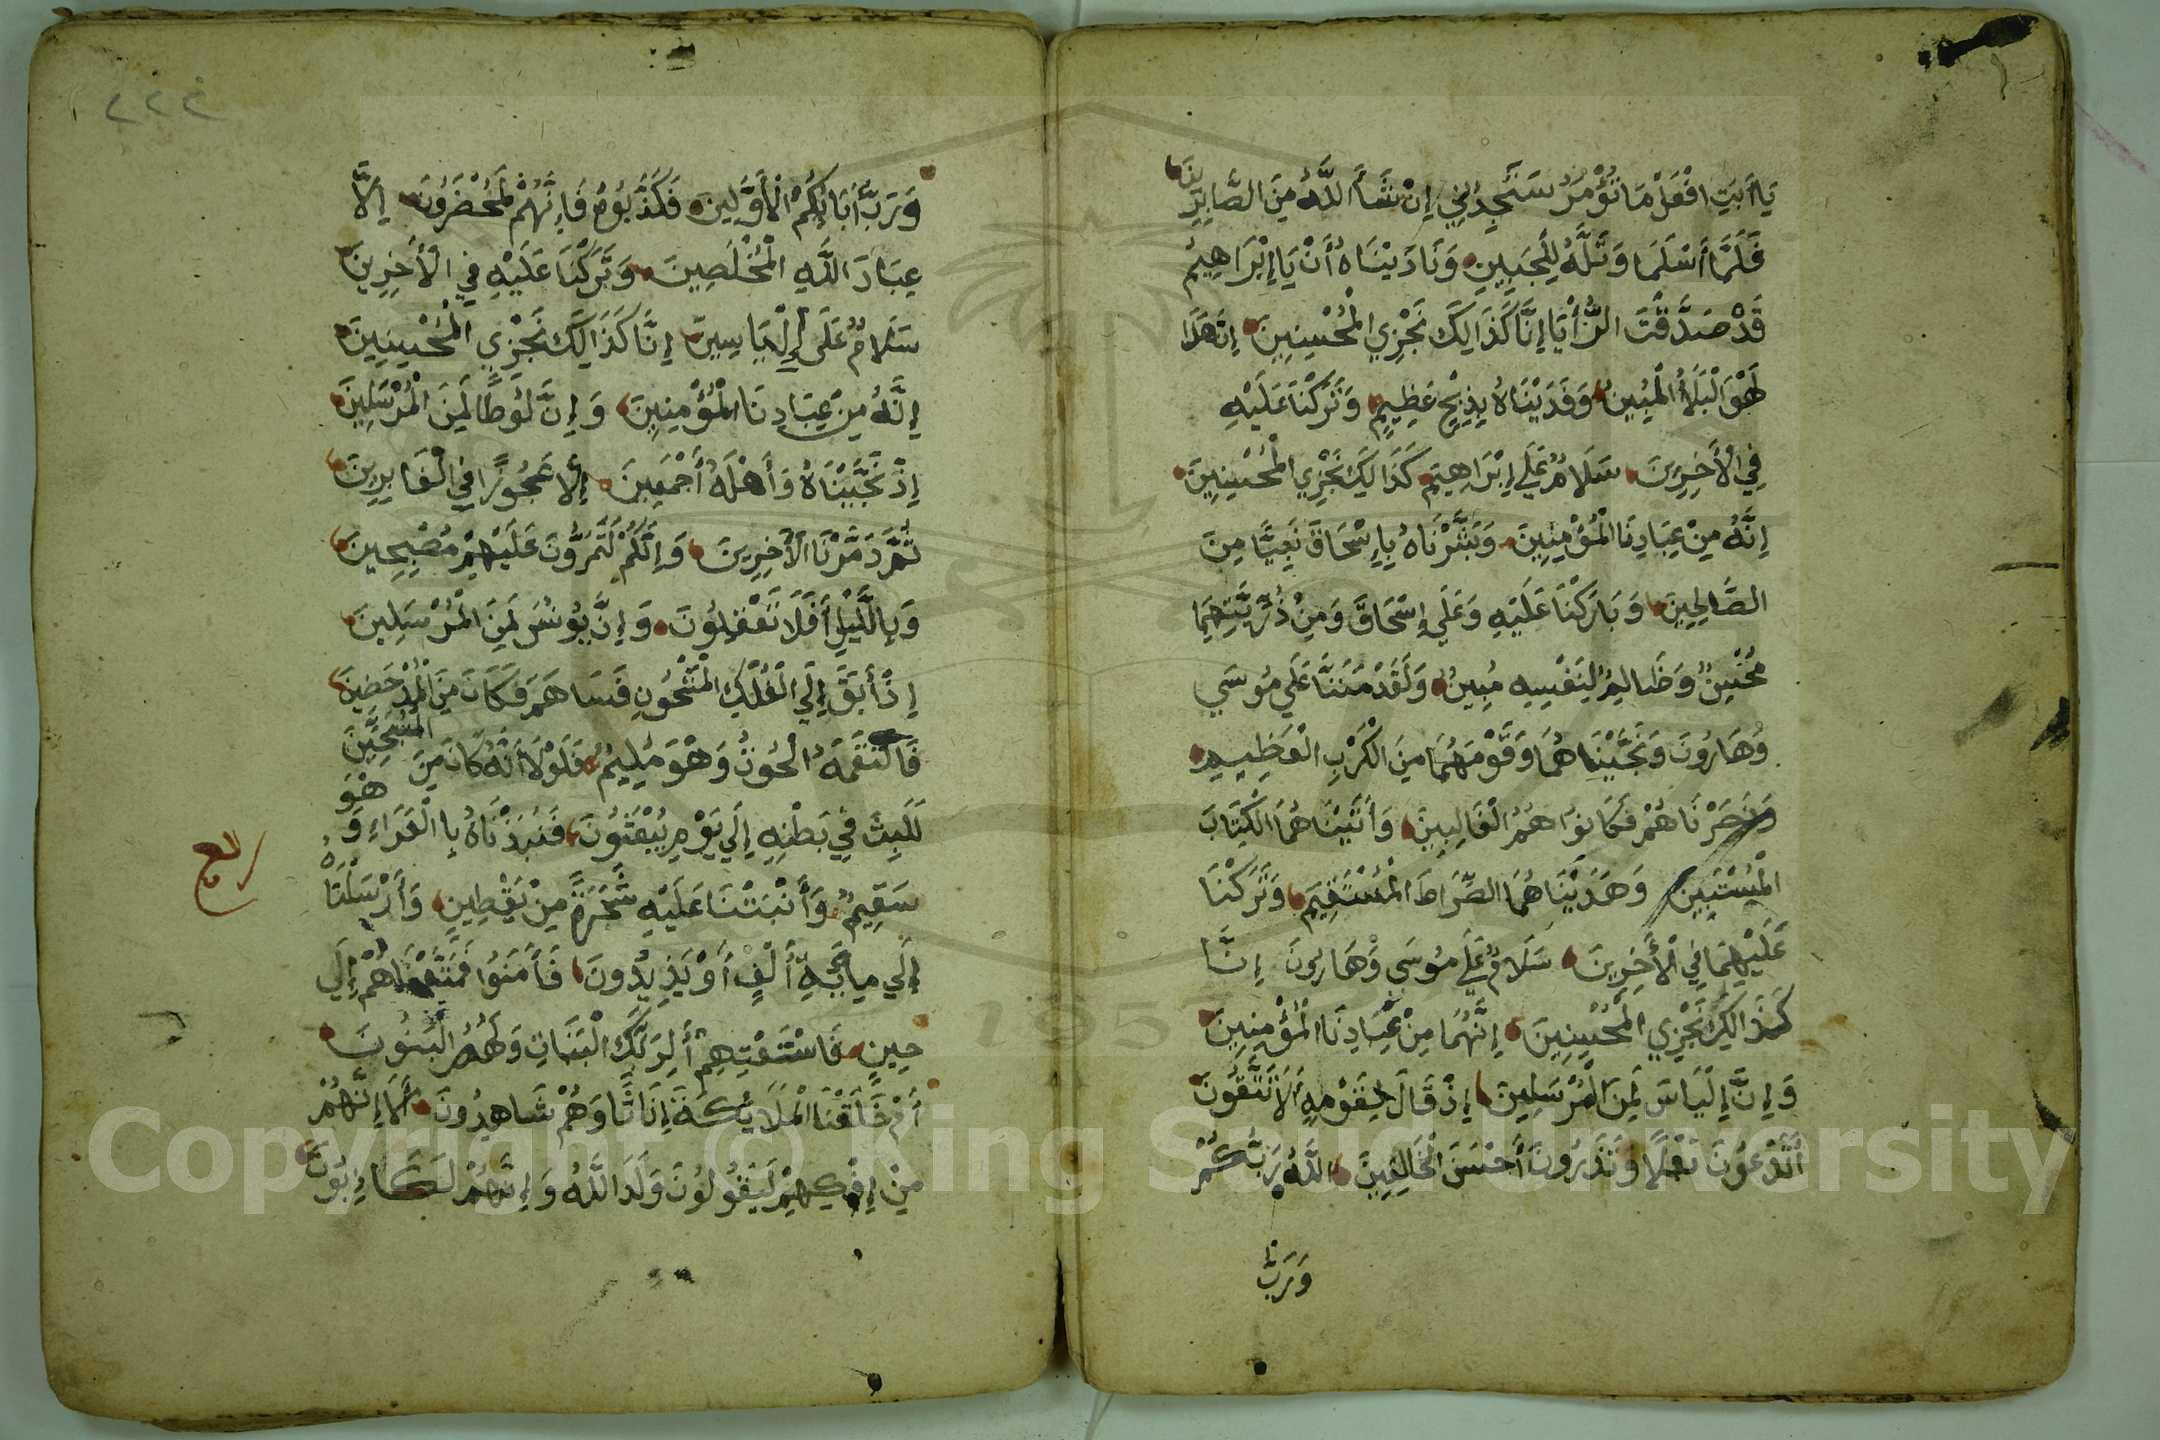 يَا أَبَتِ افْعَلْ مَا تُؤْمَرُ سَتَجِدُنِي إِنْ شَاءَ اللَّهُ مِنَ الصَّابِرِينَ
فَلَمَّا أَسْلَمَا وَتَلَّهُ لِلْجَبِينِ وَنَادَيْنَاهُ أَنْ يَا إِبْرَاهِيمُ
قَدْ صَدَّقْتَ الرُّأْيَا إِنَّا كَذَالِكَ نَجْزِي الْمُحْسِنِينَ إِنَّ هَذَا
لَهْوَ الْبَلَاُ الْمُبِينُ وَفَدَيْنَاهُ بِذِبْحٍ عَظِيمٍ وَتَرَكْنَا عَلَيْهِ
فِي الْأَخِرِينَ سَلَامٌ عَلَى إِبْرَاهِيمَ كَذَالِكَ نَجْزِي الْمُحْسِنِينَ
إِنَّهُ مِنْ عِبَادِنَا الْمُؤْمِنِينَ وَبَشَّرْنَاهُ بِإِسْحَاقَ نَبِيًّا مِنَ
الصَّالِحِينَ وَبَارَكْنَا عَلَيْهِ وَعَلَى إِسْحَاقَ وَمِنْ ذُرِّيَّتِهِمَا
مُحْسِنٌ وَظَالِمٌ لِنَفْسِهِ مُبِينٌ وَلَقَدْ مَنَنَّا عَلَى مُوسَى
وَهَارُونَ وَنَجَّيْنَاهُمَا وَقَوْمَهُمَا مِنَ الْكَرْبِ الْعَظِيمِ
وَنَصَرْنَاهُمْ فَكَانُوا هُمُ الْغَالِبِينَ وَأَتَيْنَاهُمَا الْكِتَابَ
الْمُسْتَبِينَ وَهَدَيْنَاهُمَا الصِّرَاطَ الْمُسْتَقِيمَ وَتَرَكْنَا
عَلَيْهِمَا فِي الْأَخِرِينَ سَلَامٌ عَلَى مُوسَى وَهَارُونَ إِنَّا
كَذَالِكَ نَجْزِي الْمُحْسِنِينَ إِنَّهُمَا مِنْ عِبَادِنَا الْمُؤْمِنِينَ
وَإِنَّ إِلْيَاسَ لَمِنَ الْمُرْسَلِينَ إِذْ قَالَ لِقَوْمِهِ أَلَا تَتَّقُونَ
أَتَدْعُونَ بَعْلًا وَتَذَرُونَ أَحْسَنَ الْخَالِقِينَ اللَّهُ رَبُّكُمْ
وَرَبُّ
٢٢٤
وَرَبُّ أَبَائِكُمُ الْأَوَّلِينَ فَكَذَّبُوهُ فَإِنَّهُمْ لَمُحْضَرُونَ إِلَّا
عِبَادَ اللَّهِ الْمُخْلَصِينَ وَتَرَكْنَا عَلَيْهِ فِي الْأَخِرِينَ
سَلَامٌ عَلَى إِلْيَاسِينَ إِنَّا كَذَالِكَ نَجْزِي الْمُحْسِنِينَ
إِنَّهُ مِنْ عِبَادِنَا الْمُؤْمِنِينَ وَإِنَّ لُوطًا لَمِنَ الْمُرْسَلِينَ
إِذْ نَجَّيْنَاهُ وَأَهْلَهُ أَجْمَعِينَ إِلَّا عَجُوزًا فِي الْغَابِرِينَ
ثُمَّ دَمَّرْنَا الْأَخِرِينَ وَإِنَّكُمْ لَتَمُرُّونَ عَلَيْهِمْ مُصْبِحِينَ
وَبِاللَّيْلِ أَفَلَا تَعْقِلُونَ وَإِنَّ يُونُسَ لَمِنَ الْمُرْسَلِينَ
إِذْ أَبَقَ إِلَى الْفُلْكِ الْمَشْحُونِ فَسَاهَمَ فَكَانَ مِنَ الْمُدْحَضِينَ
فَالْتَقَمَهُ الْحُوتُ وَهْوَ مُلِيمٌ فَلَوْلَا أَنَّهُ كَانَ مِنَ الْمُسَبِّحِينَ
لَلَبِثَ فِي بَطْنِهِ إِلَى يَوْمِ يُبْعَثُونَ فَنَبَذْنَاهُ بِالْعَرَاءِ وَهْوَ
سَقِيمٌ وَأَنْبَتْنَا عَلَيْهِ شَجَرَةً مِنْ يَقْطِينٍ وَأَرْسَلْنَاهُ
إِلَى مِائَةِ أَلْفٍ أَوْ يَزِيدُونَ فَأَمَنُوا فَمَتَّعْنَاهُمْ إِلَى
حِينٍ فَاسْتَفْتِهِمْ أَلِرَبِّكَ الْبَنَاتُ وَلَهُمُ الْبَنُونَ
أَمْ خَلَقْنَا الْمَلَائِكَةَ إِنَاثًا وَهُمْ شَاهِدُونَ أَلَا إِنَّهُمْ
مِنْ إِفْكِهِمْ لَيَقُولُونَ وَلَدَ اللَّهُ وَإِنَّهُمْ لَكَاذِبُونَ
Copyright © King Saud University
1957